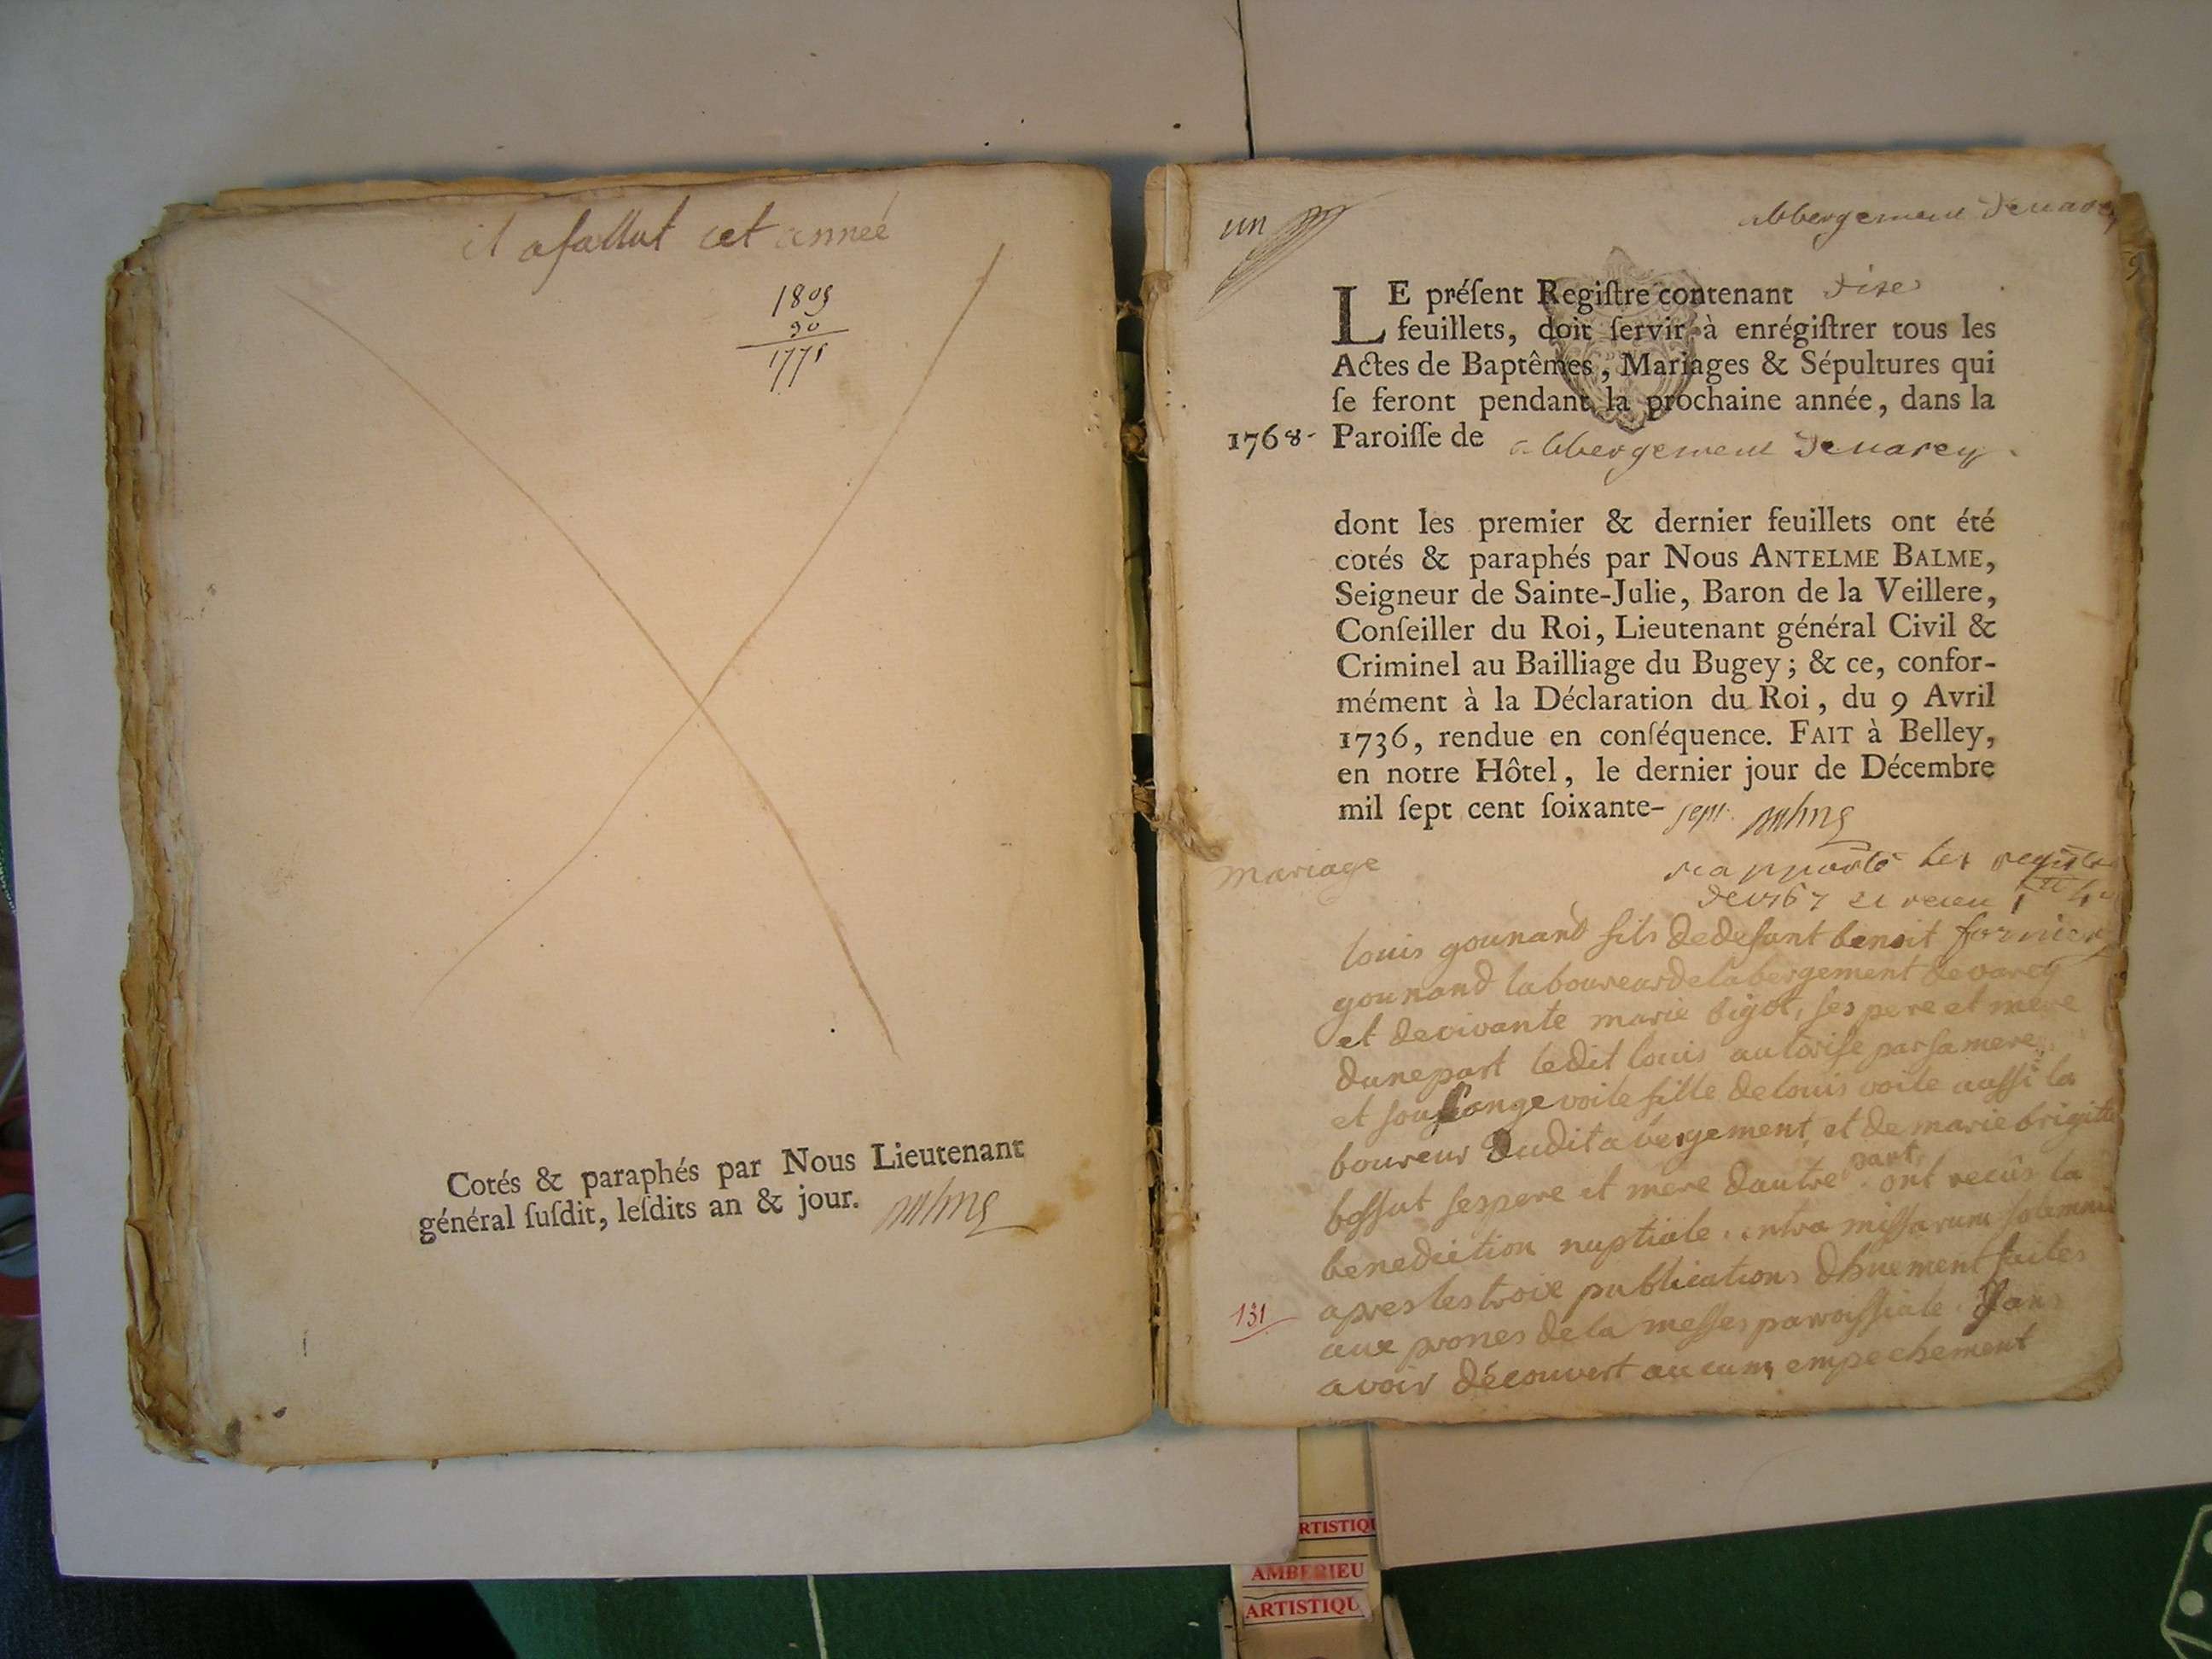 il a fallut cet anneé
1809
90
1775
Cotés & paraphés par Nous Lieutenant
général ſuſdit, leſdits an & jour.
un
abbergement de varey
LE préſent Regiſtre contenant dixe
feuillets, doit ſervir à enrégiſtrer tous les
Actes de Baptêmes, Mariages & Sépultures qui
ſe feront pendant la prochaine année, dans la
1768 Paroiſſe de abbergement de varey
dont les premier & dernier feuillets ont été
cotés & paraphés par Nous ANTELME BALME,
Seigneur de Sainte-Julie, Baron de la Veillere,
Conſeiller du Roi, Lieutenant général Civil &
Criminel au Bailliage du Bugey; & ce, confor-
mément à la Déclaration du Roi, du 9 Avril
1736, rendue en conſéquence. FAIT à Belley,
en notre Hôtel, le dernier jour de Décembre
mil ſept cent ſoixante-ſept
mariage
rapporté les registres
de 1767 et receu
louis gounand fils de defant benoit fornier
gounand laboureur de labergement de varey
et de vivante marie bigot, ses pere et mere
dune part ledit louis autorise par sa mere
et soulange voile fille de louis voile aussi la
boureur dudit abergement et de marie brigitte
bossut ses pere et mere dautre part ont recûs la
benediction nuptiale intra missarum solemnia
apres les troix publications dhuement faites
aux prones de la messes paroissiale sans
avoir découvert aucuns empechement
131